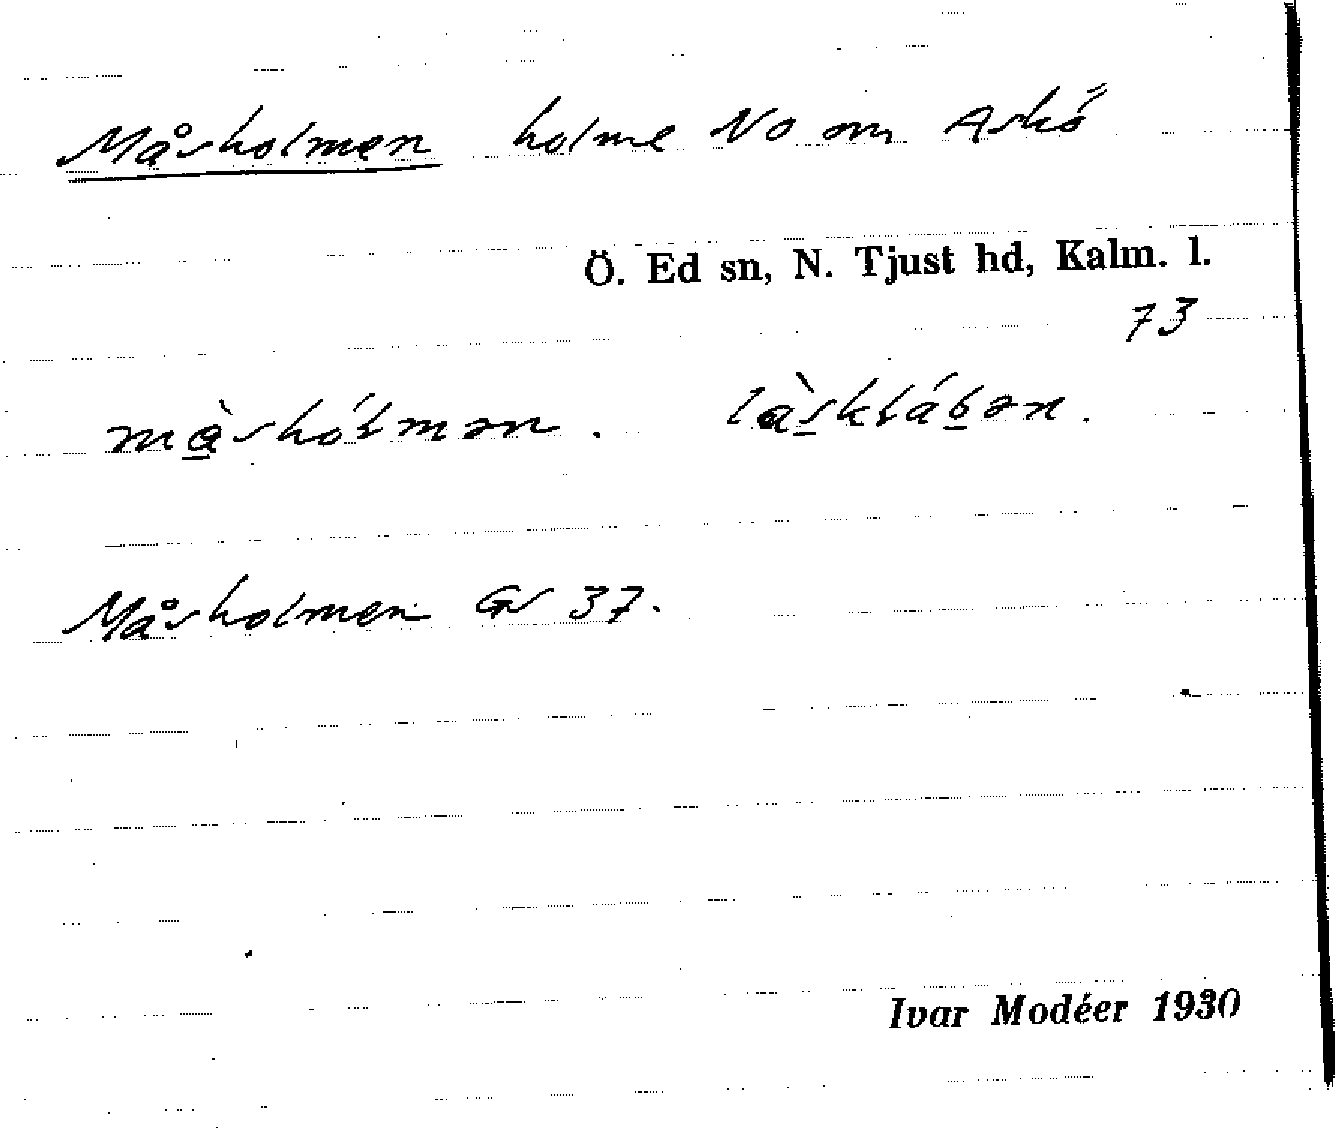 Måsholmen holme NO om Askö
Ö. Ed sn, N. Tjust hd, Kalm. l.
73
Måsholmen GV 37.
Ivar Modéer 1930